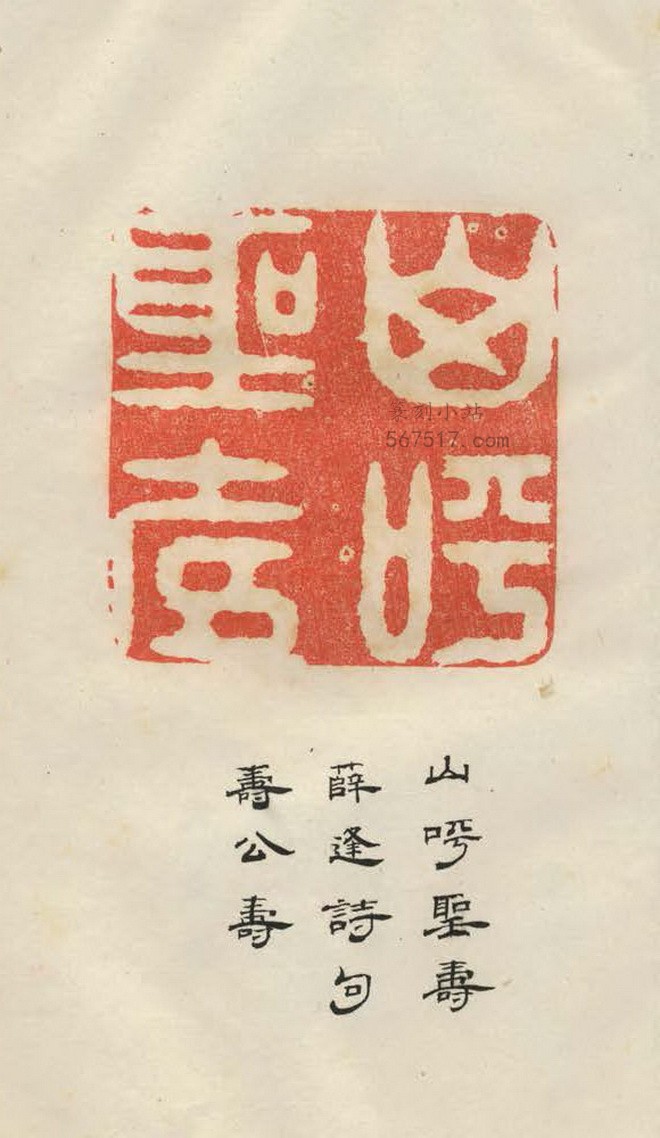 山呼
聖壽
篆刻小站
567517.com
山呼聖壽
薛逢詩句
壽公壽